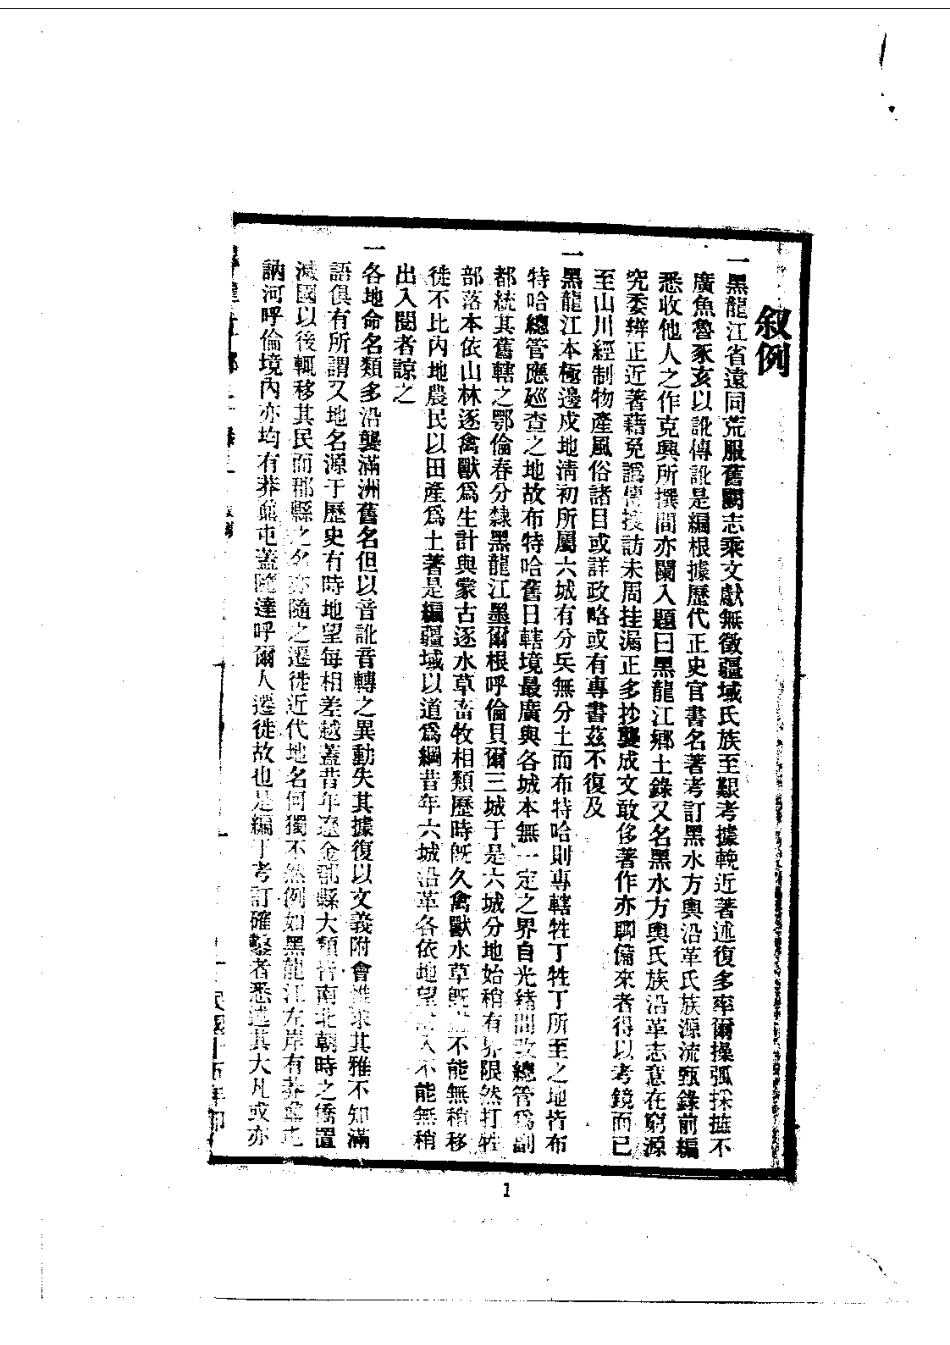 叙例
一黑龍江省遠同荒服舊闕志乘文獻無徵疆域氏族至艱考據輓近著述復多率爾操弧採摭不
廣魚魯豕亥以訛傳訛是編根據歷代正史官書名著考訂黑水方輿沿革氏族源流甄錄前編
悉收他人之作克興所撰間亦闌入題曰黑龍江鄉土錄又名黑水方輿氏族沿革志意在窮源
究委辨正近著藉免譌儻採訪未周挂漏正多抄襲成文敢侈著作亦聊備來者得以考鏡而已
至山川經制物產風俗諸目或詳政略或有專書茲不復及
一黑龍江本極邊戍地清初所屬六城有分兵無分土而布特哈則專轄牲丁牲丁所至之地皆布
特哈總管應巡查之地故布特哈舊日轄境最廣與各城本無一定之界自光緒間改總管爲副
都統其舊轄之鄂倫春分隸黑龍江墨爾根呼倫貝爾三城于是六城分地始稍有界限然打牲
部落本依山林逐禽獸爲生計與蒙古逐水草畜牧相類歷時旣久禽獸水草旣不能無稍移
徙不比內地農民以田產爲土著是編疆域以道爲綱昔年六城沿革各依地望入不能無稍
出入閱者諒之
一各地命名類多沿襲滿洲舊名但以音訛音轉之異動失其據復以文義附會惟求其雅不知滿
語俱有所謂又地名源于歷史有時地望每相差越蓋昔年遼金郡縣大類晉南北朝時之僑置
滅國以後輒移其民而郡縣之名亦隨之遷徙近代地名何獨不然例如黑龍江左岸有莽鼐屯
訥河呼倫境內亦均有莽鼐屯蓋隨達呼爾人遷徙故也是編于考訂確鑿者悉述其大凡或亦
民國十五年印
1